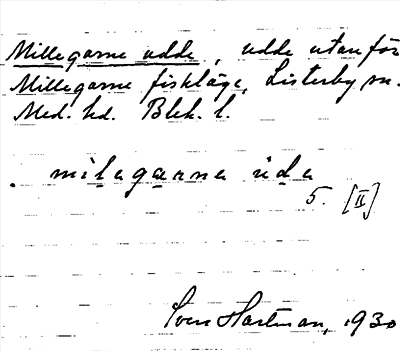 Millegarne udde, udde utanför
Millegarne fiskläge, Listerby sn.
Med. hd. Blek. l.
. milagarna uda
5. [II]
Sven Hartman, 1930